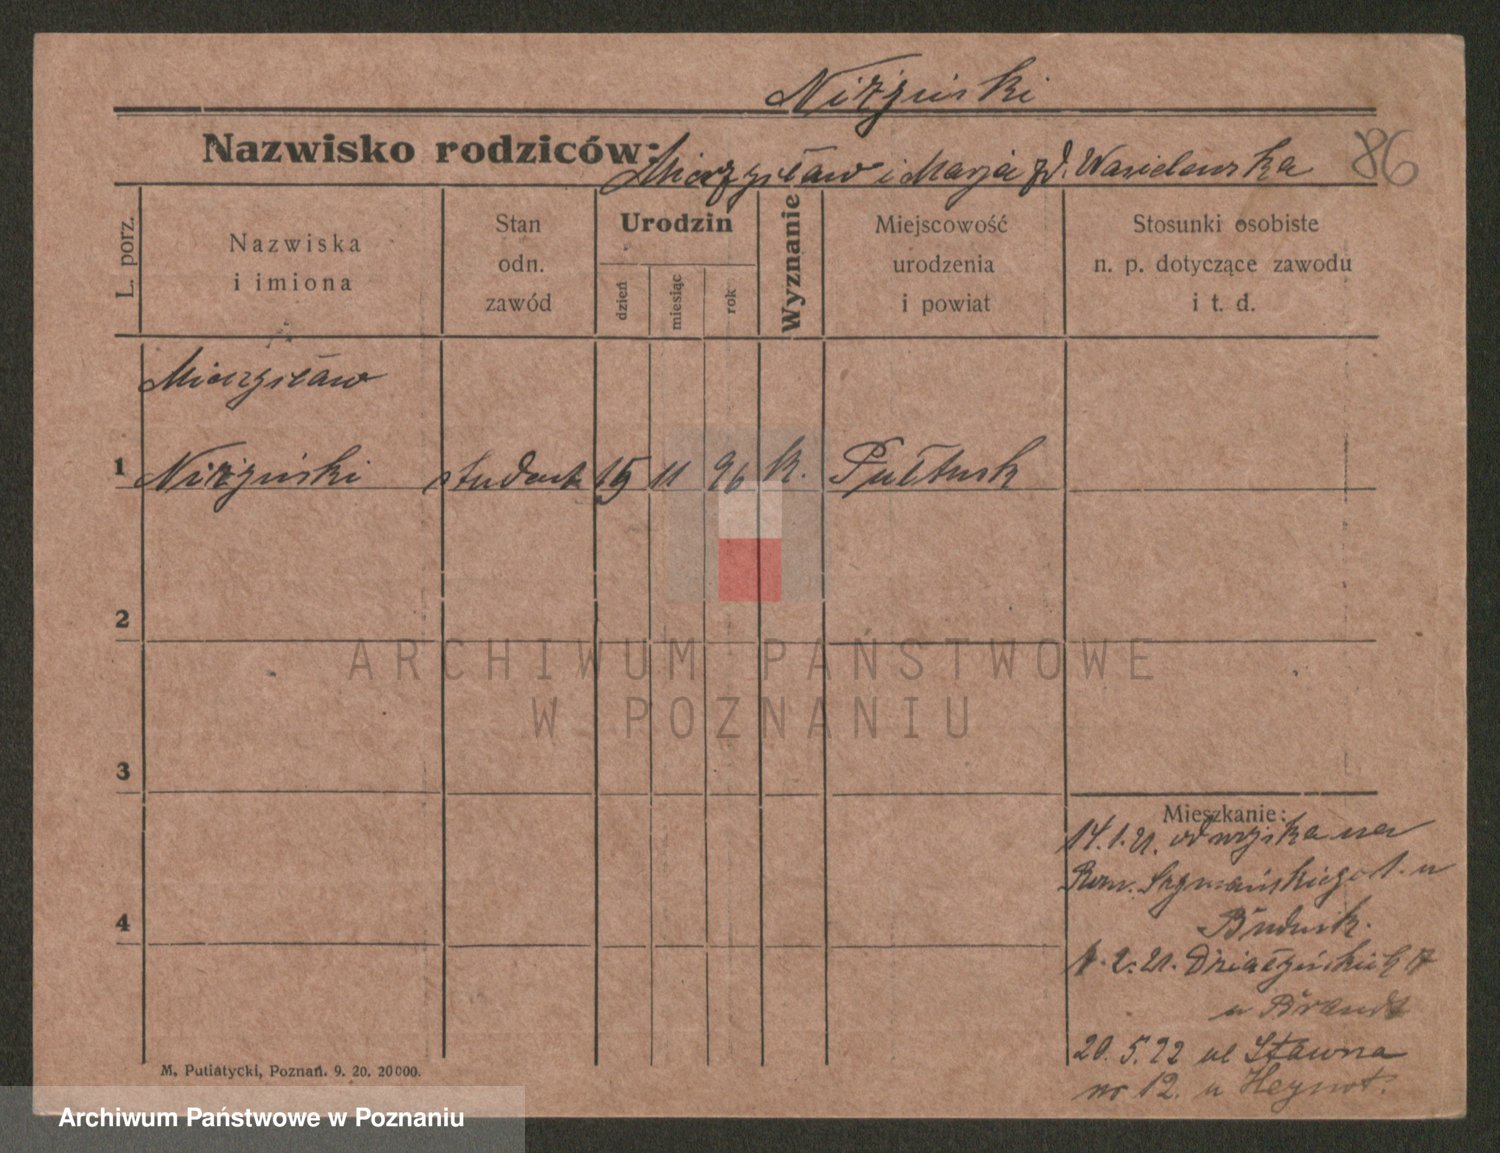 Niżyński
Nazwisko rodziców: Mieczysław i Marja zd. Wasielewska 86
L. porz.
Nazwiska
i imiona
Stan
odn.
zawód
Urodzin
dzień
miesiąc
rok
Wyznanie
Miejscowość
urodzenia
i powiat
Stosunki osobiste
n. p. dotyczące zawodu
i t. d.
Mieczysław
1 Niżyński student 15 11 96 k. Pułtusk
2
3
4
Mieszkanie:
14.1.21. od wojska na
Rom. Szymańskiego 1. u
Budnik.
1.2.21. Działyńskich 7
u Brandt
20.5.22 ul Stawna
nr 12. u
M. Putiatycki, Poznań. 9. 20. 20000.
ARCHIWUM PAŃSTWOWE
W POZNANIU
Archiwum Państwowe w Poznaniu